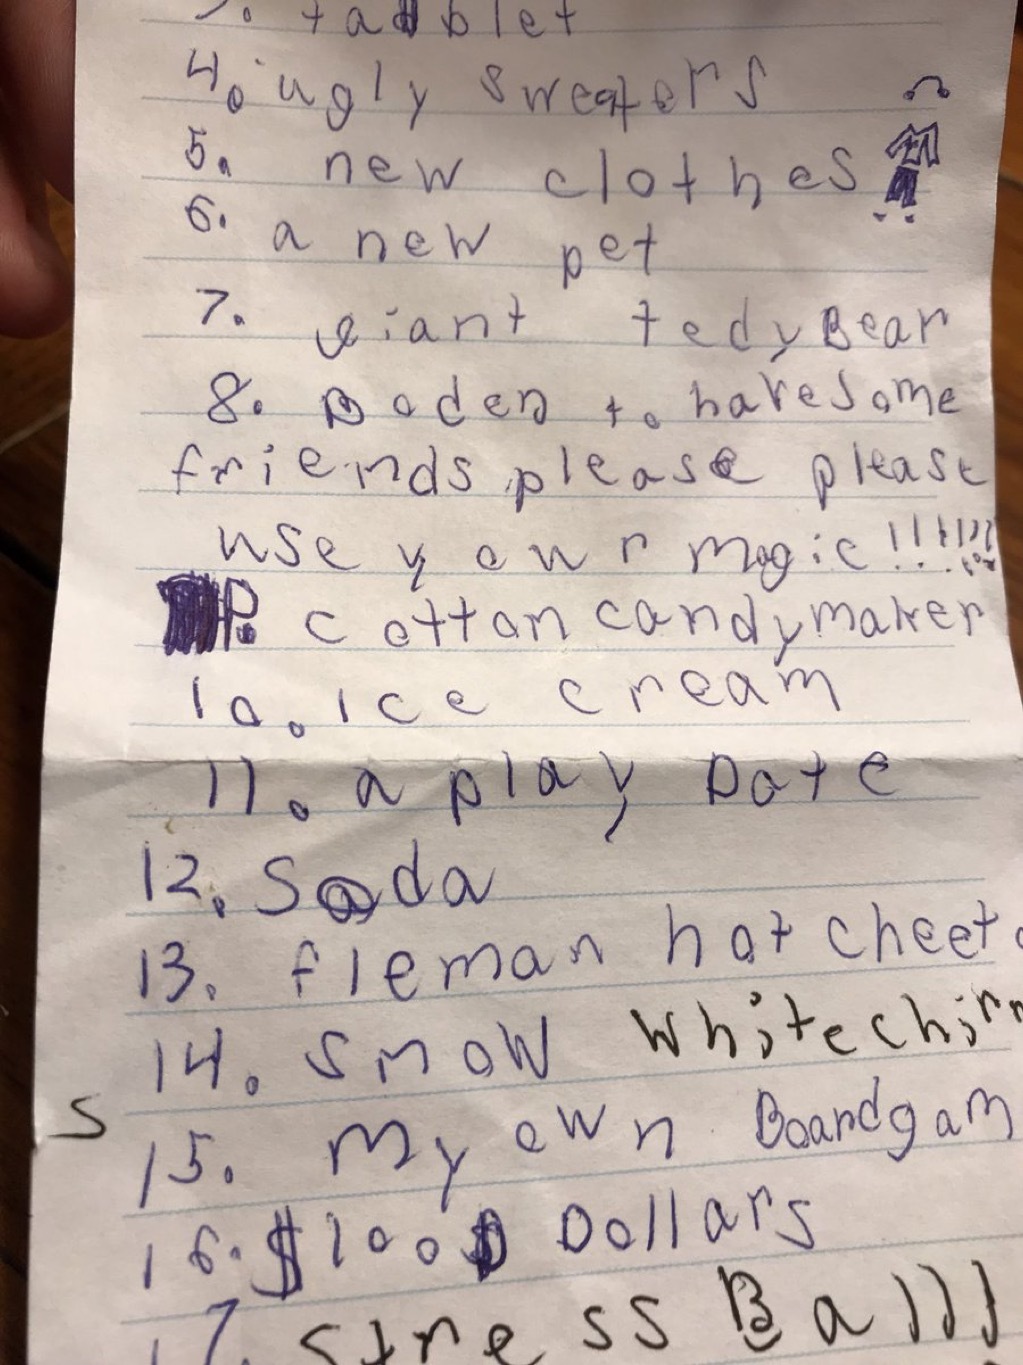 3. tadblet
4. ugly sweaters
5. new clothes
6. a new pet
7. giant tedyBear
8. Boden to have some
friends please please
use your magic!!!!!!!
9. cotton candymaker
10. ice cream
11. a play Date
12. Soda
13. fleman hot cheeto
14. snow White chirm
S
15. My own Boardgam
16. $100 Dollars
17. stress Balll